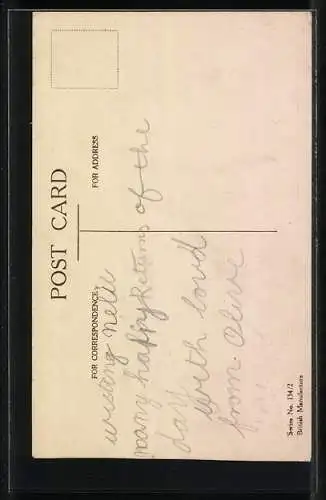 POST CARD
FOR CORRESPONDENCE.
FOR ADDRESS
wisting Nelli
many happy Returns of the
day
with loud
from. Olive
Series No. 134/2
British Manufacture